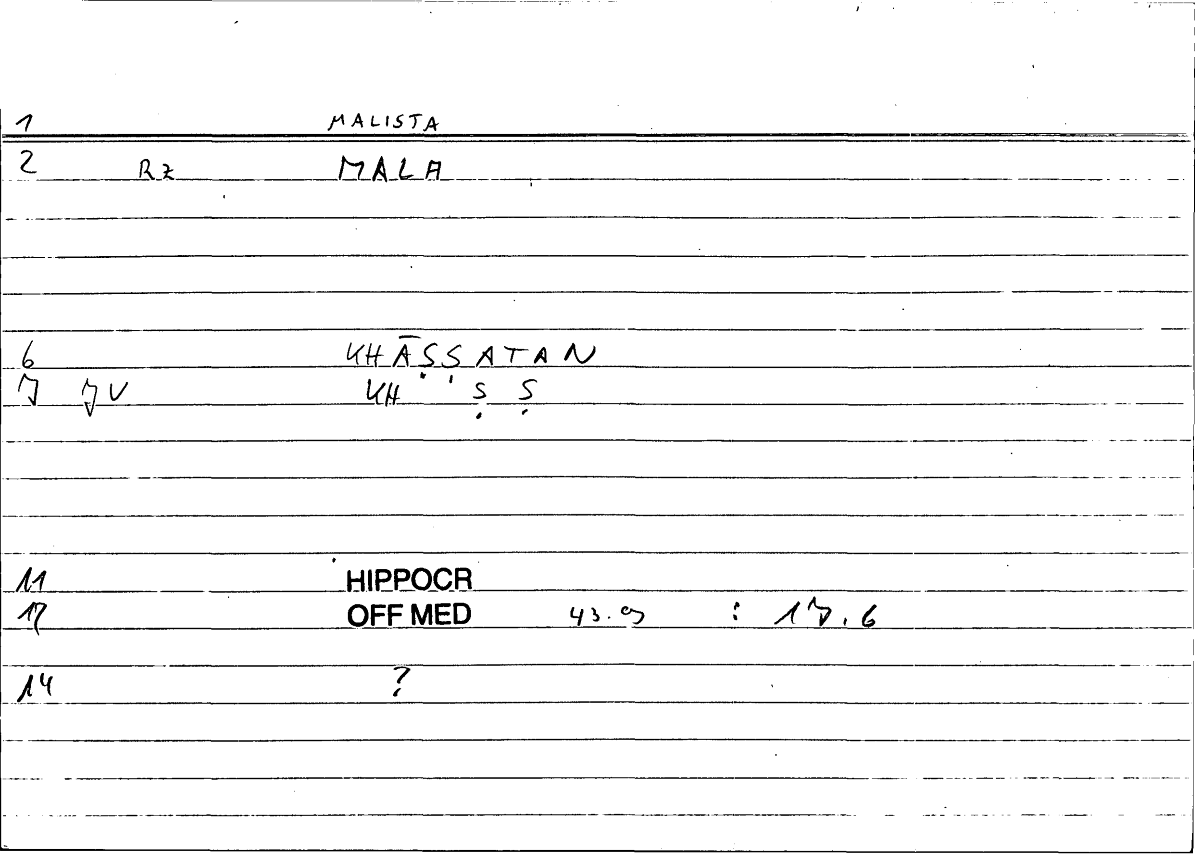 1 MALISTA
2 Rz MALA
6 KHĀṢṢATAN
7 KH Ṣ Ṣ
11 HIPPOCR
12 OFF MED 43.9 : 17.6
14 ?